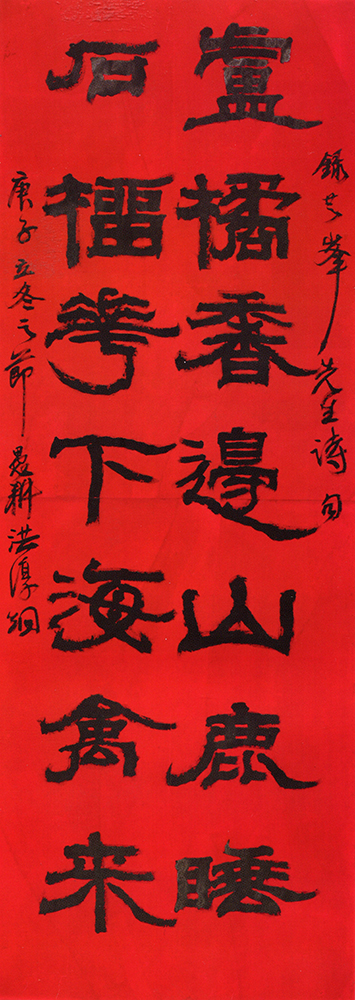 錄芝峯先生詩句
盧橘香邊山鹿睡
石榴花下海禽来
庚子立冬之節 愚耕洪淳炯